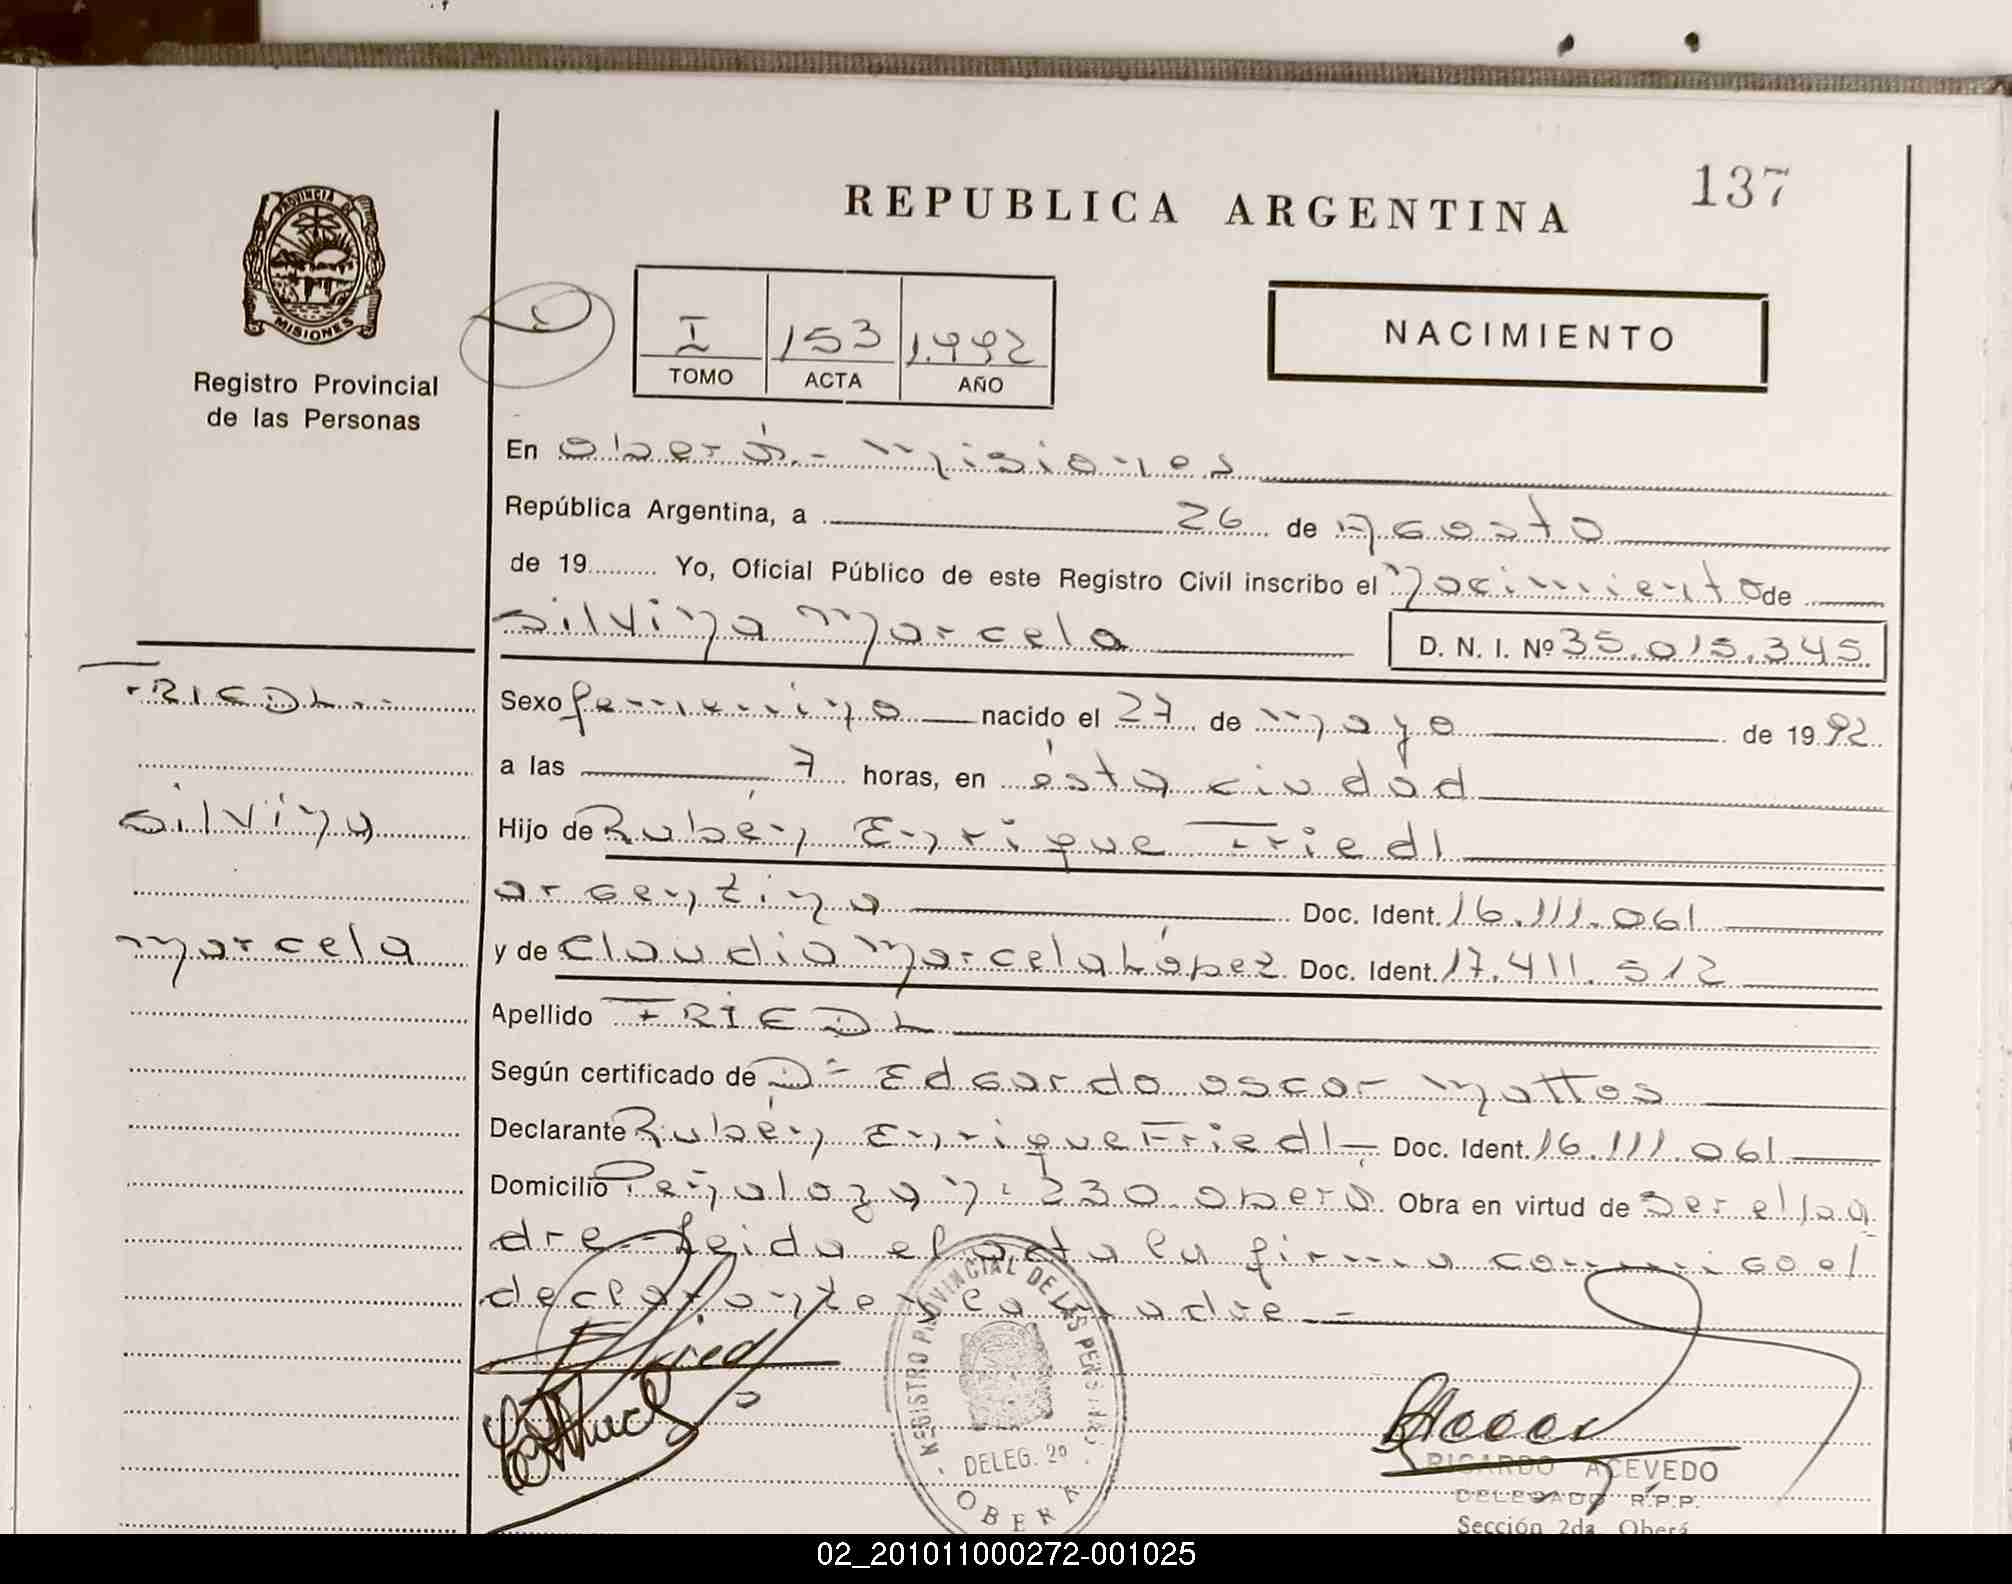 137
REPUBLICA ARGENTINA
PROVINCIA DE
MISIONES
Registro Provincial
de las Personas
I 153 1.992
TOMO ACTA AÑO
NACIMIENTO
En Oberá.- Misiones
República Argentina, a 26 de Agosto
de 19 Yo, Oficial Público de este Registro Civil inscribo el Nacimiento de
Silvina Marcela D. N. I. Nº 35.015.345
FRIEDL.-
Silvina
Marcela
Sexo femenino nacido el 27 de mayo de 1992
a las 7 horas, en ésta ciudad
Hijo de Rubén Enrique Friedl
argentina Doc. Ident. 16.111.061
y de Claudia Marcela López Doc. Ident. 17.411.512
Apellido FRIEDL
Según certificado de Dº Edgardo Oscar Mattos
Declarante Rubén Enrique Friedl Doc. Ident. 16.111.061
Domicilio Peñaloza n: 230 Oberá Obra en virtud de ser el pa
dre Leida el acta la firma conmigo el
declarante y la madre -
REGISTRO PROVINCIAL DE LAS PERSONAS
DELEG. 2º
OBERA
RICARDO ACEVEDO
DELEGADO R.P.P.
Sección 2da. Oberá
02_201011000272-001025